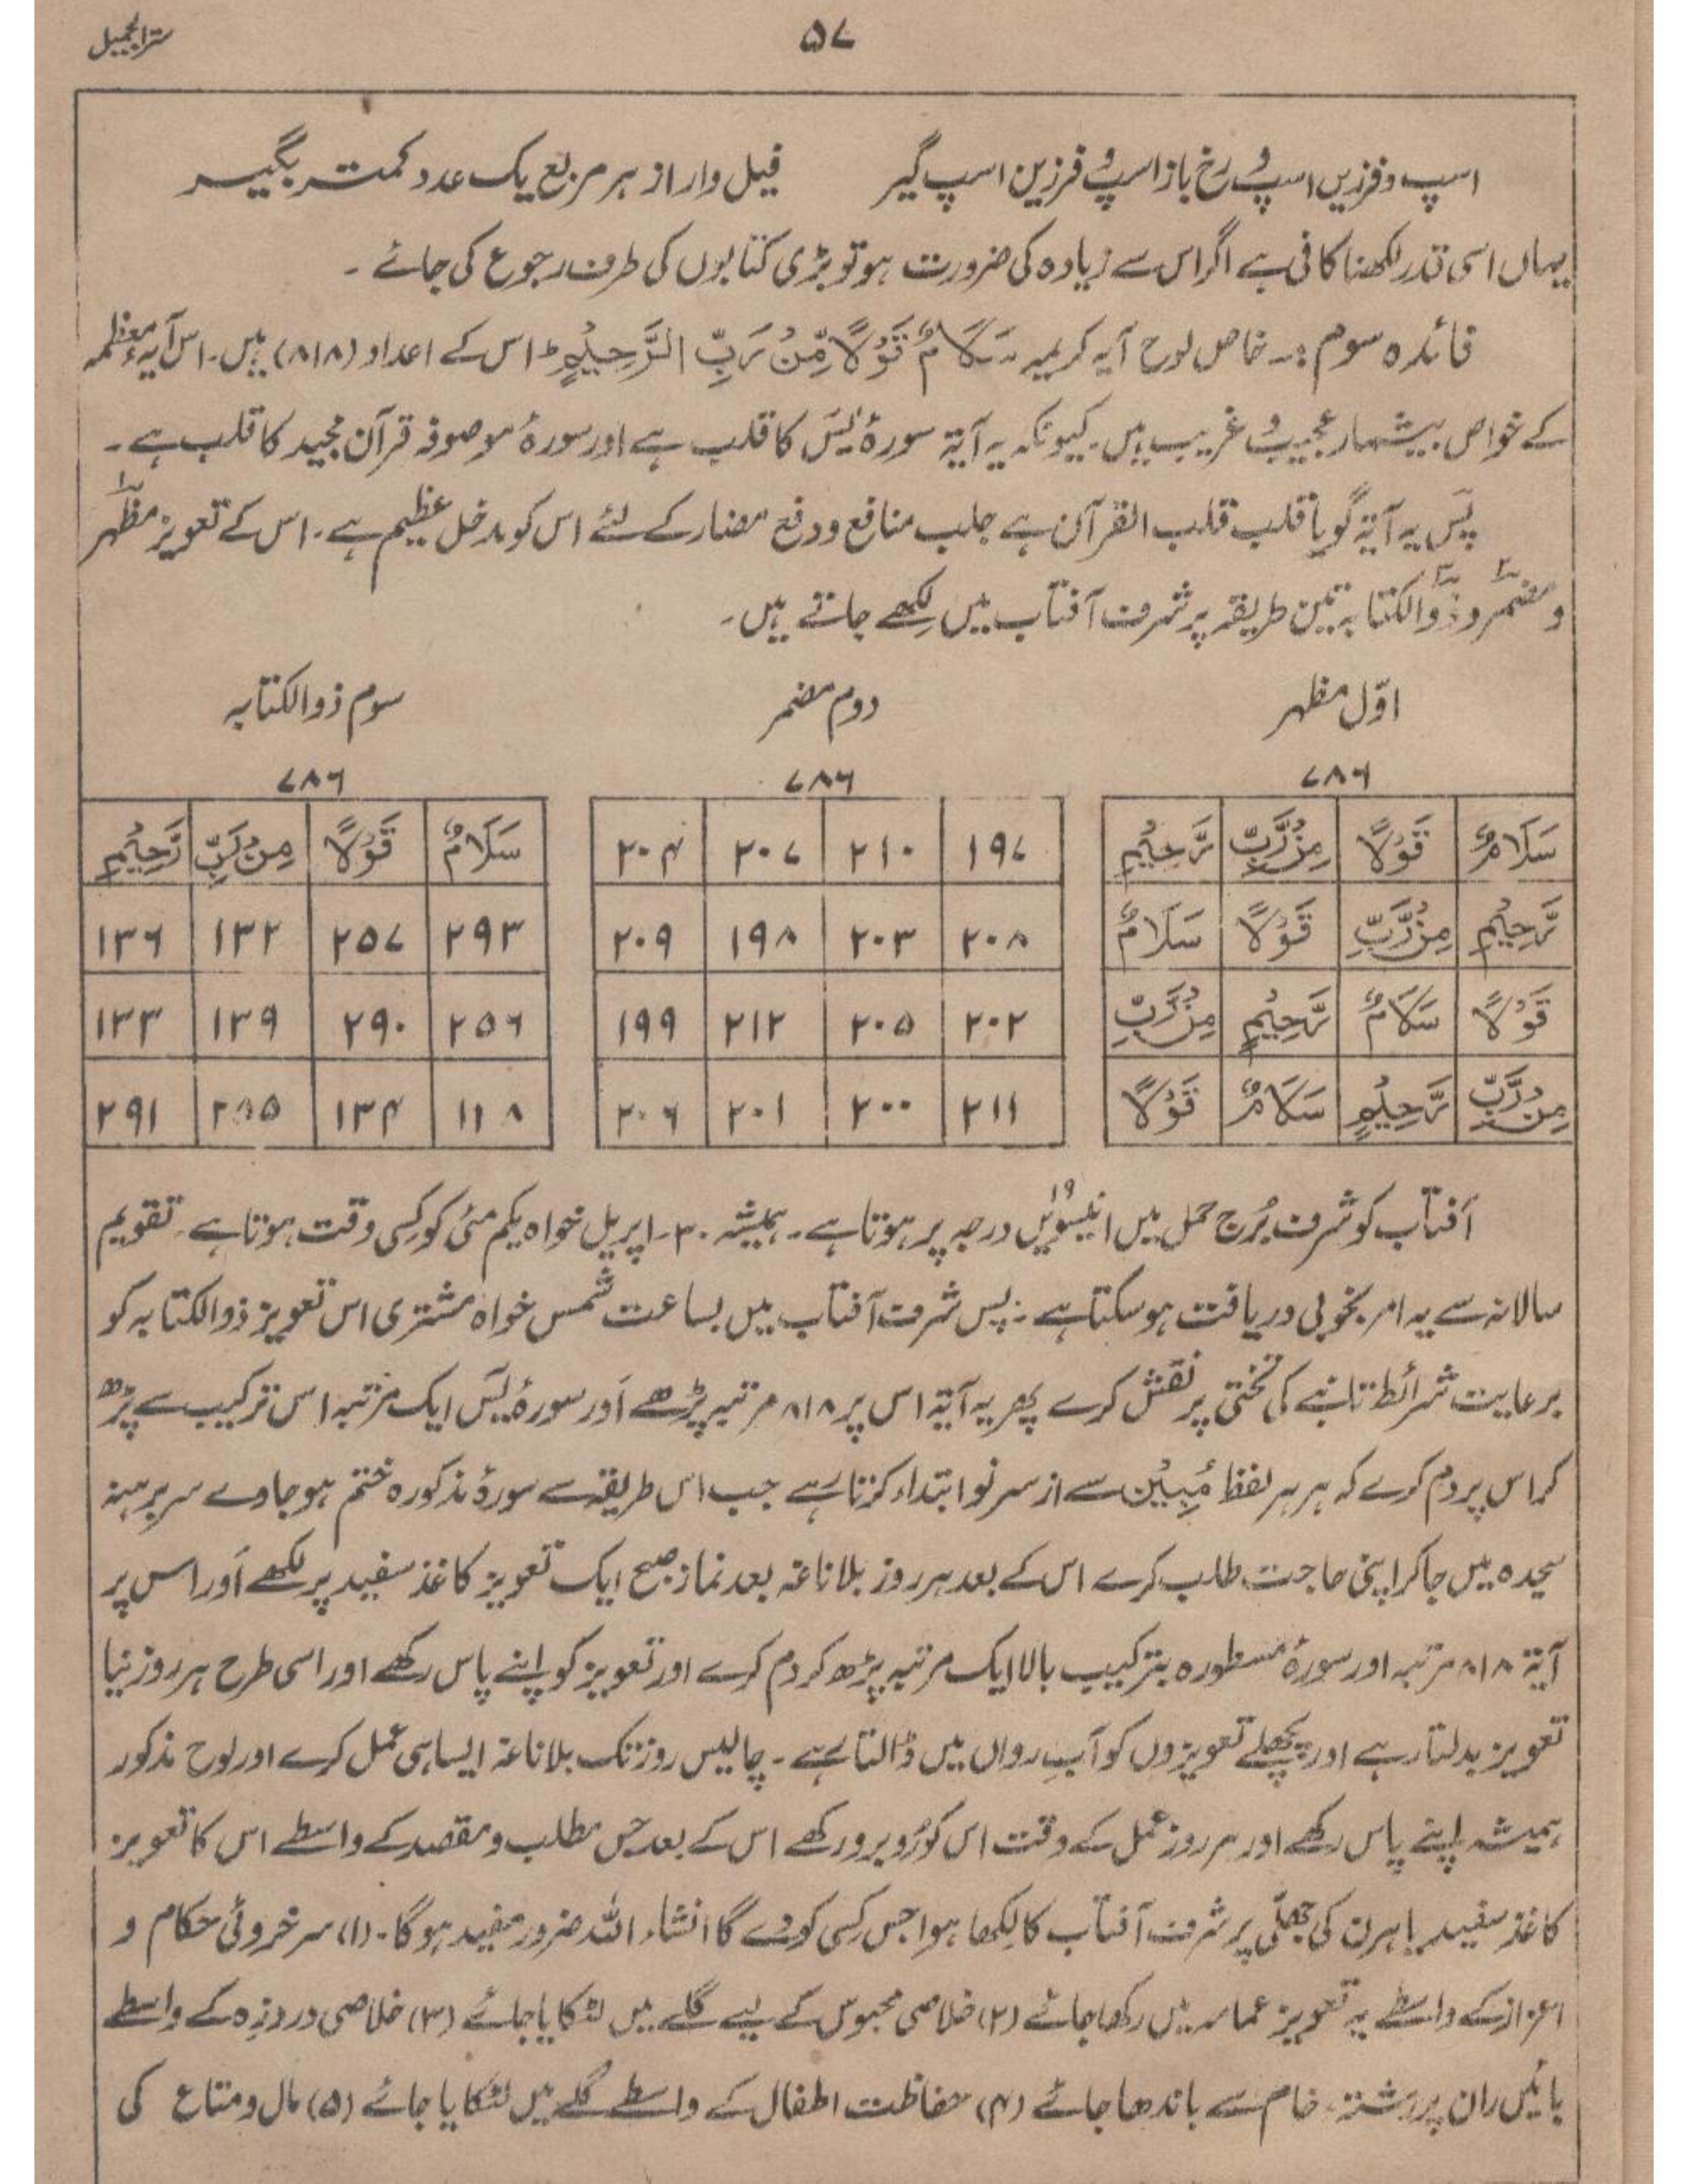 ۵۷
سترالجمیل
اسپ و فرزیں اسپ و رخ باز اسپ و فرزین اسپ گیر فیل وار از ہر مربع یک عدد کمتر بگیر
یہاں اسی قدر لکھنا کافی ہے اگر اس سے زیادہ کی ضرورت ہو تو بڑی کتابوں کی طرف رجوع کی جائے ۔
فائدہ سوم :۔ خاص لوح آیہ کریمیہ سَلَامٌ قَوْلًا مِّنْ رَبِّ الرَّحِیْمٍ ط اس کے اعداد (۸۱۸) ہیں ۔ اس آیہ معظمہ
کے خواص بیشمار عجیب و غریب ہیں ۔ کیونکہ یہ آیۃ سورۂ یٰسٓ کا قلب ہے اور سورۂ موصوفہ قرآن مجید کا قلب ہے ۔
پس یہ آیۃ گویا قلب قلب القرآن ہے جلب منافع و دفع مضار کے لئے اس کو مدخل عظیم ہے ۔ اس کے تعویز مظہر۱
و مضمر۲ و ذوالکتابہ۳ تین طریقہ پر شرف آفتاب میں لکھے جاتے ہیں ۔
اوّل مظہر دوم مضمر سوم ذوالکتابہ
۷۸۶ ۷۸۶ ۷۸۶
سَلَامٌ قَوْلًا مِنْ رَّبِّ رَّحِیْمٍ ۱۹۷ ۲۱۰ ۲۰۷ ۲۰۴ سَلَامٌ قَوْلًا مِنْ رَبِّ رَّحِیْمٍ
رَّحِیْمٍ مِنْ رَّبِّ قَوْلًا سَلَامٌ ۲۰۸ ۲۰۳ ۱۹۸ ۲۰۹ ۲۹۳ ۲۵۷ ۱۳۲ ۱۳۶
قَوْلًا سَلَامٌ رَّحِیْمٍ مِنْ رَّبِّ ۲۰۲ ۲۰۵ ۲۱۲ ۱۹۹ ۲۵۶ ۲۹۰ ۱۳۹ ۱۳۳
مِنْ رَّبِّ رَّحِیْمٍ سَلَامٌ قَوْلًا ۲۱۱ ۲۰۰ ۲۰۱ ۲۰۶ ۱۳۴ ۲۹۱
آفتاب کو شرف بُرج حمل میں انیسویں۱۹ درجہ پر ہوتا ہے ۔ ہمیشہ ۳۰ ۔ اپریل خواہ یکم مئی کو کسی وقت ہوتا ہے ۔ تقویم
سالانہ سے یہ امر بخوبی دریافت ہو سکتا ہے ۔ پس شرف آفتاب میں بساعت شمس خواہ مشتری اس تعویز ذوالکتابہ کو
برعایت شرائط تانبے کی تختی پر نقش کرے پھر یہ آیۃ اس پر ۸۱۸ مرتبہ پڑھے اور سورۂ یٰسٓ ایک مرتبہ اس ترکیب سے پڑھ
کر اس پر دم کرے کہ ہر ہر لفظ مُبِیْن سے از سر نو ابتداء کرتا رہے جب اس طریقہ سے سورۂ مذکورہ ختم ہو جاوے سر برہنہ
سجدہ میں جا کر اپنی حاجت طلب کرے اس کے بعد ہر روز بلا ناغہ بعد نماز صبح ایک تعویز کاغذ سفید پر لکھے اور اس پر
آیۃ ۸۱۸ مرتبہ اور سورۂ مسطورہ بترکیب بالا ایک مرتبہ پڑھ کر دم کرے اور تعویز کو اپنے پاس رکھے اور اسی طرح ہر روز نیا
تعویز بدلتا رہے اور پچھلے تعویزوں کو آبِ رواں میں ڈالتا رہے ۔ چالیس روز تک بلا ناغہ ایسا ہی عمل کرے اور لوح مذکور
ہمیشہ اپنے پاس رکھے اور ہر روز عمل کے وقت اس کو رُوبرو رکھے اس کے بعد جس مطلب و مقصد کے واسطے اس کا تعویز
کاغذ سفید یا ہرن کی جھلّی پر شرف آفتاب کا لکھا ہوا جس کسی کو دے گا انشاء اللہ ضرور مفید ہوگا ۔ (۱) سرخروئی حکام و
اعزاز کے واسطے یہ تعویز عمامہ میں رکھا جائے (۲) خلاصی محبوس کے لیے گلے میں لٹکایا جائے (۳) خلاصی دردِ زہ کے واسطے
بائیں ران پر رشتہ خام سے باندھا جائے (۴) حفاظت اطفال کے واسطے گلے میں لٹکایا جائے (۵) مال و متاع کی